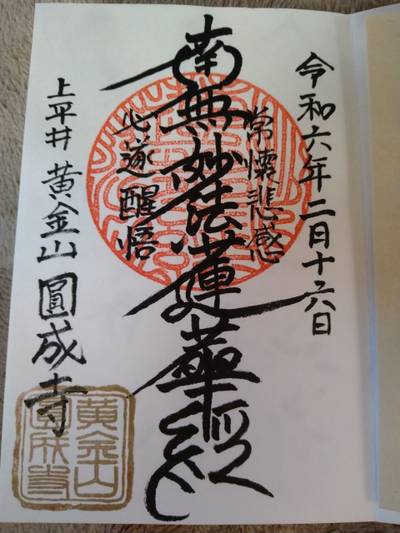 令和六年二月十六日
常懐悲感
南無妙法蓮華経
心遂醒悟
上平井 黄金山 圓成寺
黄金山
圓成寺